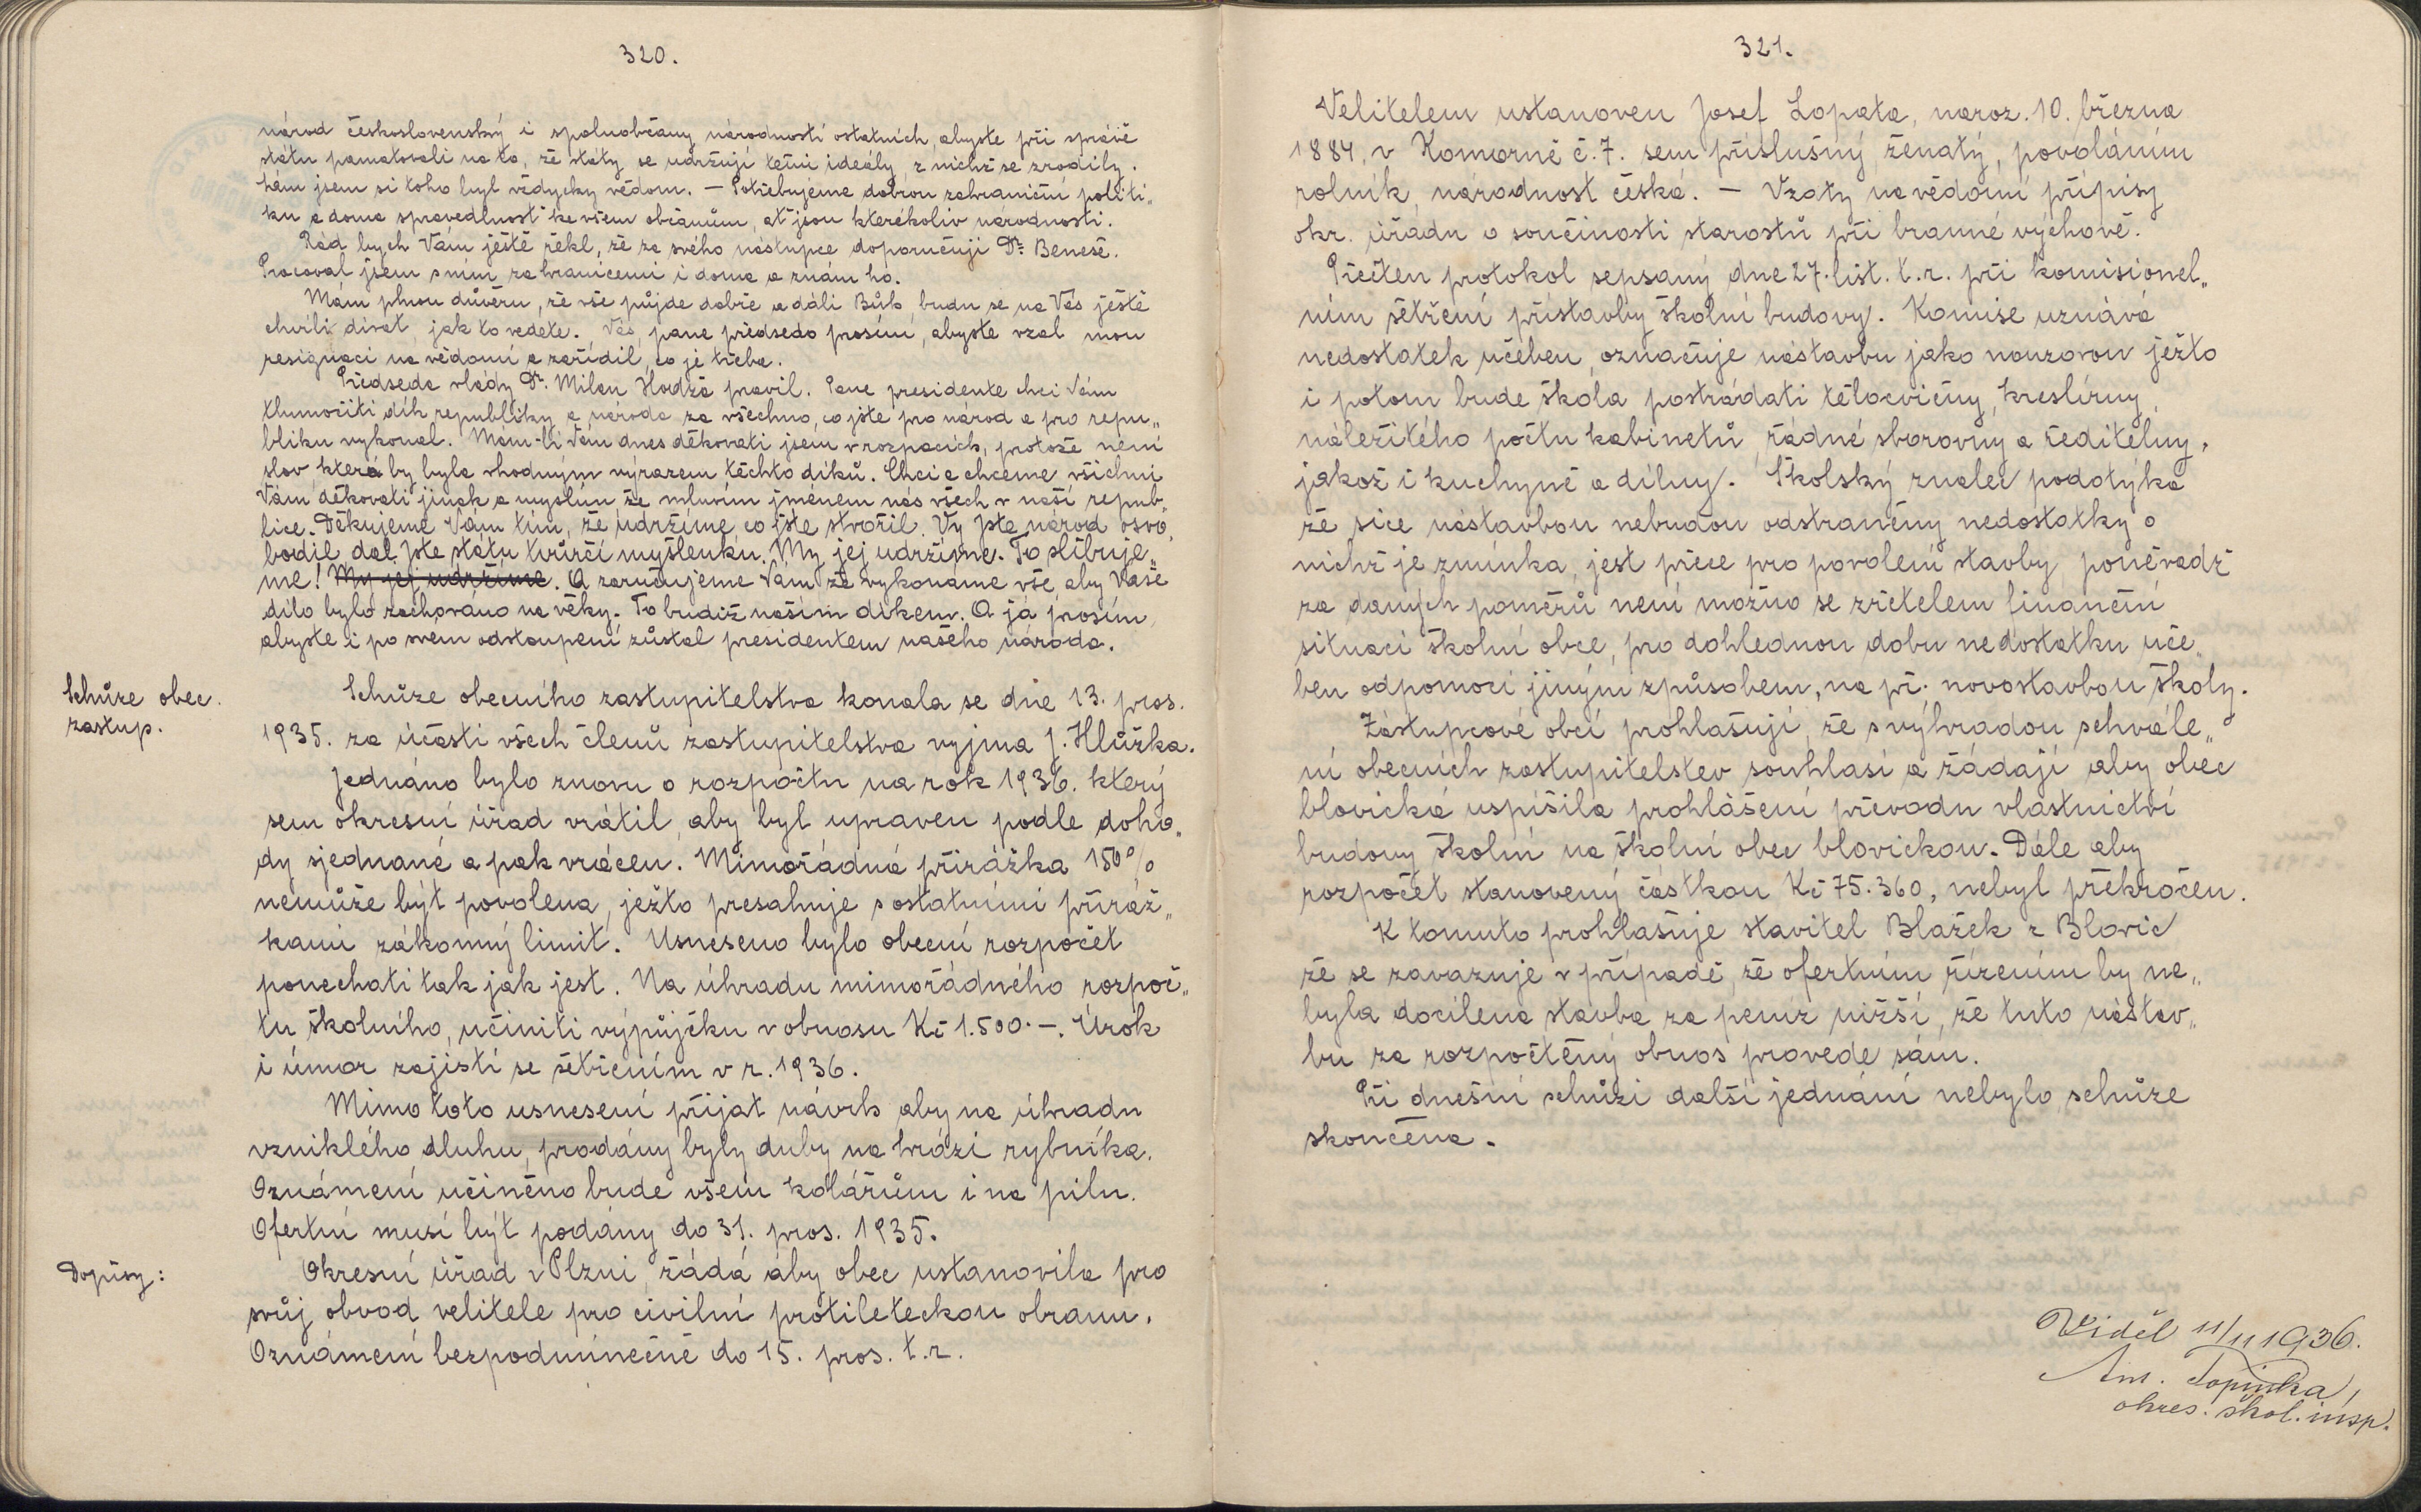 320.
národ československý i spoluobčany národností ostatních, abyste při správě
státu pamatovali na to, že státy se udržují těmi ideály, z nichž se zrodily.
Sám jsem si toho byl vědycky vědom. — Potřebujeme dobrou zahraniční politi„
ku a doma spravedlnost ke všem občanům, ať jsou kterékoliv národnosti.
Rád bych Vám ještě řekl, že za svého nástupce doporučuji Dr. Beneše.
Pracoval jsem s ním za hranicemi i doma a znám ho.
Mám plnou důvěru, že vše půjde dobře a dáli Bůh, budu se na Vás ještě
chvíli dívat, jak to vedete. Vás, pane předsedo prosím, abyste vzal mou
resignaci na vědomí a zařídil, co je třeba.
Předseda vlády Dr. Milan Hodža pravil. Pane presidente chci Vám
tlumočiti dík republiky a národa za všechno, co jste pro národ a pro repu„
bliku vykonal. Mám-li Vám dnes děkovati jsem v rozpacích, protože není
slov která by byla vhodným výrazem těchto díků. Chci a chceme všichni
Vám děkovati jinak a myslím že mluvím jménem nás všech v naší repub„
lice. Děkujeme Vám tím, že udržíme co jste stvořil. Vy jste národ osvo„
bodil, dal jste státu tvůrčí myšlenku. My jej udržíme. To slibuje„
me! My jej udržíme. A zaručujeme Vám že vykonáme vše, aby Vaše
dílo bylo zachováno na věky. To budiž naším díkem. A já prosím,
abyste i po svém odstoupení zůstal presidentem našeho národa.
Schůze obec.
zastup.
Schůze obecního zastupitelstva konala se dne 13. pros.
1935. za účasti všech členů zastupitelstva vyjma J. Hlůžka.
Jednáno bylo znovu o rozpočtu na rok 1936. který
sem okresní úřad vrátil, aby byl upraven podle doho„
dy sjednané a pak vrácen. Mimořádná přirážka 150%
nemůže být povolena, ježto presahuje s ostatními přiráž„
kami zákonný limit. Usneseno bylo obecní rozpočet
ponechati tak jak jest. Na úhradu mimořádného rozpoč„
tu školního, učiniti výpůjčku v obnosu Kč 1.500.—. Úrok
i úmor zajistí se šetřením v r. 1936.
Mimo toto usnesení přijat návrh aby na úhradu
vzniklého dluhu, prodány byly duby na hrázi rybníka.
Oznámení učiněno bude všem kolářům i na pilu.
Ofertní musí být podány do 31. pros. 1935.
Dopisy:
Okresní úřad v Plzni, žádá aby obec ustanovila pro
svůj obvod velitele pro civilní protileteckou obranu.
Oznámení bezpodmínečně do 15. pros. t.r.
321.
Velitelem ustanoven Josef Lopata, naroz. 10. března
1884, v Komorně č. 7. sem příslušný ženatý, povoláním
rolník, národnost česká. — Vzaty na vědomí přípisy
okr. úřadu o součinosti starostů při branné výchově.
Přečten protokol sepsaný dne 27. list. t.r. při komisionel„
ním šetření přístavby školní budovy. Komise uznává
nedostatek učeben, označuje nástavbu jako nouzovou ježto
i potom bude škola postrádati tělocvičny, kreslírny,
náležitého počtu kabinetů, řádné sborovny a ředitelny,
jakož i kuchyně a dílny. Školský znalec podotýká
že sice nástavbou nebudou odstraněny nedostatky o
nichž je zmínka, jest přece pro povolení stavby, poněvadž
za daných poměrů není možno se zřetelem finanční
situaci školní obce, pro dohlednou dobu nedostatku uče„
ben odpomoci jiným způsobem, na př. novostavbou školy.
Zástupcové obcí prohlašují, že s výhradou schvále„
ní obecních zastupitelstev souhlasí a žádají aby obec
blovická uspíšila prohlášení převodu vlastnictví
budovy školní na školní obec blovickou. Dále aby
rozpočet stanovený částkou Kč 75.360, nebyl překročen.
K tomuto prohlašuje stavitel Blažek z Blovic
že se zavazuje v případě, že ofertním řízením by ne„
byla docílena stavba za peníz nižší, že tuto nástav„
bu za rozpočtěný obnos provede sám.
Při dnešní schůzi další jednání nebylo schůze
skončena.
Viděl 11/11 1936.
Ant. Topinka,
okres. škol. insp.